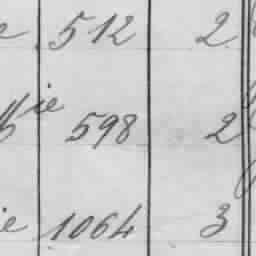 e 512 2
ie 598 2
ie 1064 3